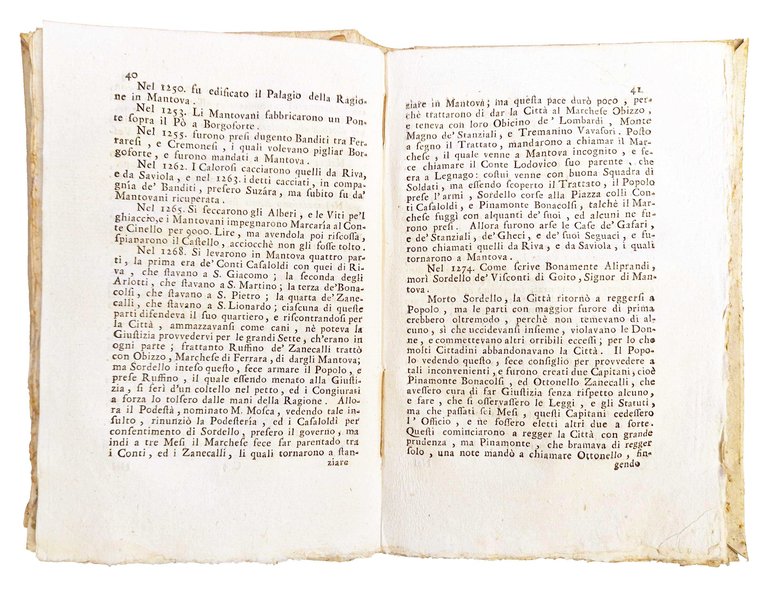 40
Nel 1250. fu edificato il Palagio della Ragio-
ne in Mantova.
Nel 1253. Li Mantovani fabbricarono un Pon-
te sopra il Pò a Borgoforte.
Nel 1255. furono presi dugento Banditi tra Fer-
raresi, e Cremonesi, i quali volevano pigliar Bor-
goforte, e furono mandati a Mantova.
Nel 1262. I Calorosi cacciarono quelli da Riva,
e da Saviola, e nel 1263. i detti cacciati, in compa-
gnia de' Banditi, presero Suzára, ma subito fu da'
Mantovani ricuperata.
Nel 1265. Si seccarono gli Alberi, e le Viti pe'l
ghiaccio, e i Mantovani impegnarono Marcaría al Con-
te Cinello per 9000. Lire, ma avendola poi riscossa,
spianarono il Castello, acciocchè non gli fosse tolto.
Nel 1268. Si levarono in Mantova quattro par-
ti, la prima era de' Conti Casaloldi con quei di Ri-
va, che stavano a S. Giacomo; la seconda degli
Arlotti, che stavano a S. Martino; la terza de' Bona-
colsi, che stavano a S. Pietro; la quarta de' Zane-
calli, che stavano a S. Lionardo; ciascuna di queste
parti difendeva il suo quartiero, e riscontrandosi per
la Città, ammazzavansi come cani, nè poteva la
Giustizia provvedervi per le grandi Sette, ch'erano in
ogni parte; frattanto Ruffino de' Zanecalli trattò
con Obizzo, Marchese di Ferrara, di dargli Mantova;
ma Sordello inteso questo, fece armare il Popolo, e
prese Ruffino, il quale essendo menato alla Giusti-
zia, si ferì d'un coltello nel petto, ed i Congiurati
a forza lo tolsero dalle mani della Ragione. Allo-
ra il Podestà, nominato M. Mosca, vedendo tale in-
sulto, rinunziò la Podestería, ed i Casaloldi per
consentimento di Sordello, presero il governo, ma
indi a tre Mesi il Marchese fece far parentado tra
i Conti, ed i Zanecalli, li quali tornarono a stan-
ziare
41
ziare in Mantova; ma questa pace durò poco, per-
chè trattarono di dar la Città al Marchese Obizzo,
e teneva con loro Obicino de' Lombardi, Monte
Magno de' Stanziali, e Tremanino Vavasori. Posto
a segno il Trattato, mandarono a chiamar il Mar-
chese, il quale venne a Mantova incognito, e fe-
ce chiamare il Conte Lodovico suo parente, che
era a Legnago: costui venne con buona Squadra di
Soldati, ma essendo scoperto il Trattato, il Popolo
prese l'armi, Sordello corse alla Piazza colli Con-
ti Casaloldi, e Pinamonte Bonacolsi, talchè il Mar-
chese fuggì con alquanti de' suoi, ed alcuni ne fu-
rono presi. Allora furono arse le Case de' Gafari,
e de' Stanziali, de' Gheci, e de' suoi Seguaci, e fu-
rono chiamati quelli da Riva, e da Saviola, i quali
tornarono a Mantova.
Nel 1274. Come scrive Bonamente Aliprandi,
morì Sordello de' Visconti di Goito, Signor di Man-
tova.
Morto Sordello, la Città ritornò a reggersi a
Popolo, ma le parti con maggior furore di prima
crebbero oltremodo, perchè non temevano di al-
cuno, sì che uccidevansi insieme, violavano le Don-
ne, e commettevano altri orribili eccessi; per lo che
molti Cittadini abbandonavano la Città. Il Popo-
lo vedendo questo, fece consiglio per provvedere a
tali inconvenienti, e furono creati due Capitani, cioè
Pinamonte Bonacolsi, ed Ottonello Zanecalli, che
avessero cura di far Giustizia senza rispetto alcuno,
e fare, che si osservassero le Leggi, e gli Statuti,
ma che passati sei Mesi, questi Capitani cedessero
l'Officio, e ne fossero eletti altri due a sorte.
Questi cominciarono a regger la Città con grande
prudenza, ma Pinamonte, che bramava di regger
solo, una notte mandò a chiamare Ottonello, fin-
gendo